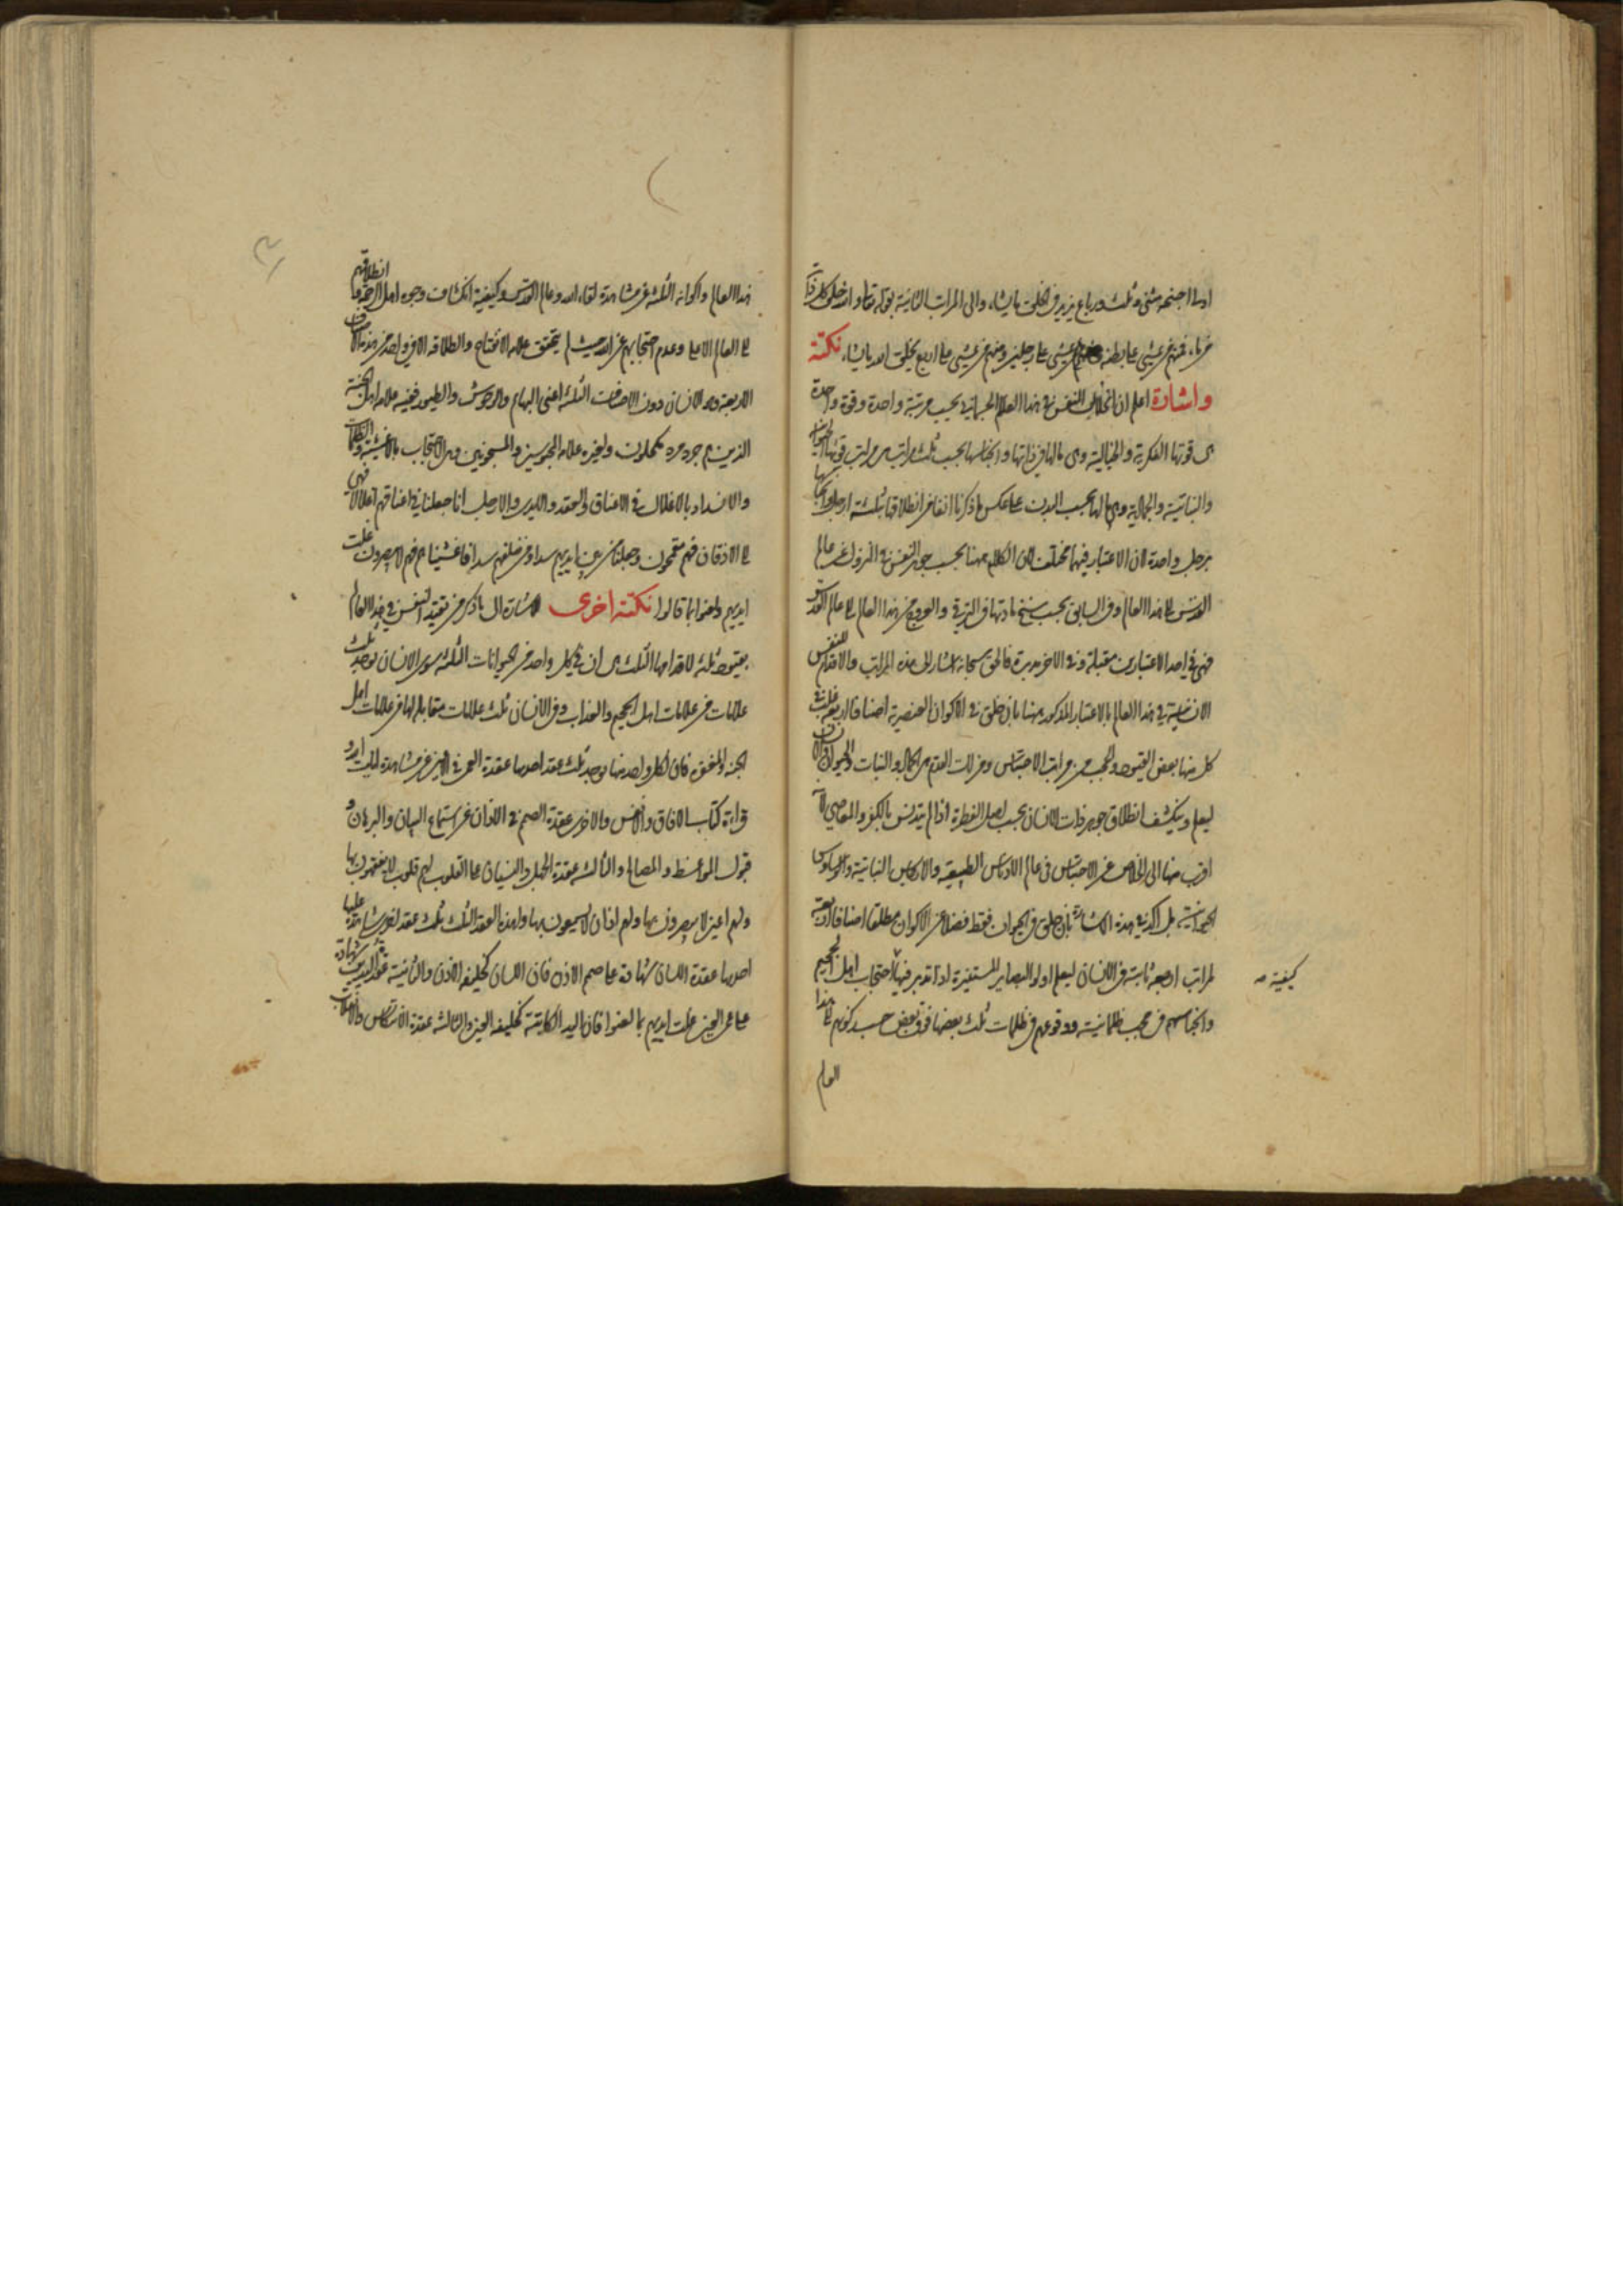 اولى اجنحة مثنى وثلث ورباع يزيد في الخلق ما يشاء والى المراتب الثانية بقوله تعالى والله خلق كل دابة
من ماء فمنهم من يمشي على بطنه ومنهم من يمشي على رجلين ومنهم من يمشي على اربع يخلق الله ما يشاء نكتة
واشارة اعلم ان النفس في هذا العالم الجسماني بحسب مرتبة واحدة وقوة واحدة
هى قوتها الفكرية والخيالية وهى مالها في ذاتها وانحباسها بحسب ثلث مراتب هى مراتب قوتها الحيوانية
والنباتية والجمادية وهى مالها بحسب البدن على عكس ما ذكرنا انفا من انطلاقها بثلثة ارجل واحتباسها
برجل واحدة لان الاعتبار فيهما مختلف لان الكلام ههنا بحسب جوهر النفس في النزول عن عالم
القدس الى هذا العالم وفي السابق بحسب سنخ مادتها في الترقي والعروج من هذا العالم الى عالم القدس
فهى في احد الاعتبارين مقبلة وفي الاخر مدبرة فالحق سبحانه اشار الى هذه المراتب والاقدام للنفس
الانسانية في هذا العالم بالاعتبار المذكور ههنا بان خلق في الاكوان العنصرية اصنافا اربعة غلب في
كل منها بعض القيود والحجب من مراتب الاحتباس ومنزلات القدم هى الجماد والنبات والحيوان والانسان
ليعلم وينكشف انطلاق جوهر ذات الانسان بحسب اصل الفطرة اذا لم يتدنس بالكفر والمعاصي لانه
اقرب منها الى الخلاص عن الاحتباس في عالم الادناس الطبيعية والارجاس النباتية والوساوس
الحيوانية بل اكد في هذه الاشارة بان خلق في الحيوان فقط فضلا عن الاكوان مطلقا اصنافا اربعة
لمراتب اربعة ثابتة في الانسان ليعلم اولو البصاير المستنيرة اذا تدبر فيها احتجاب اهل الجحيم
كيفية صـ
وانحباسهم في حجب ظلمانية ووقوعهم في ظلمات ثلث بعضها فوق بعض حسب كونهم في هذا
العالم
هذا العالم واكوانه الثلثة عن مشاهدة لقاء الله وعالم القدس وكيفية انكشاف وجوه اهل الرحمة وانطلاقهم
الى العالم الاعلى وعدم احتجابهم عن الله حيث لم يتحقق علامة الانفتاح والطلاقة الا في واحد من هذه الاصناف
الاربعة وهو الانسان دون الاصناف الثلثة اعنى البهايم والوحوش والطيور ففيه علامة اهل الجنة
الذين هم جرد مرد مكحلون ولغيره علامة المحبوسين والمسجونين وهى الاحتجاب بالاغشية والظلمات
والانسداد بالاغلال في الاعناق والعقد والايدى والارجل انا جعلنا في اعناقهم اغلالا فهى
الى الاذقان فهم مقمحون وجعلنا من بين ايديهم سدا ومن خلفهم سدا فاغشيناهم فهم لا يبصرون غلت
ايديهم ولعنوا بما قالوا نكتة اخرى الاشارة الى ما ذكر من تقييد النفس في هذا العالم
بقيود ثلثة لاقدامها الثلث هى ان في كل واحد من الحيوانات الثلثة سوى الانسان توجد ثلث
علامات من علامات اهل الجحيم والعذاب وفي الانسان ثلث علامات متقابلة لها من علامات اهل
الجنة والمغفرة فان لكل واحد منها يوجد ثلث عقد احدها عقدة العمى في العين عن مشاهدة ايات
قراءة كتاب الافاق والانفس والاخرى عقدة الصمم في الاذان عن استماع البيان والبرهان و
قبول المواعظ والمصالح والثالثة عقدة الجهل والنسيان عما القلوب لهم قلوب لا يفقهون بها
ولهم اعين لا يبصرون بها ولهم اذان لا يسمعون بها ولهذه العقد الثلث ثلث عقد اخرى شاهدة عليها
احدها عقدة اللسان شهادة على صمم الاذن فان اللسان كخليفة الاذن والثانية عقد اليدين شهادة
على عمى العين غلت ايديهم بما لعنوا فان اليد الكاتبة كخليفة العين والثالثة عقدة الانتكاس والانقلاب